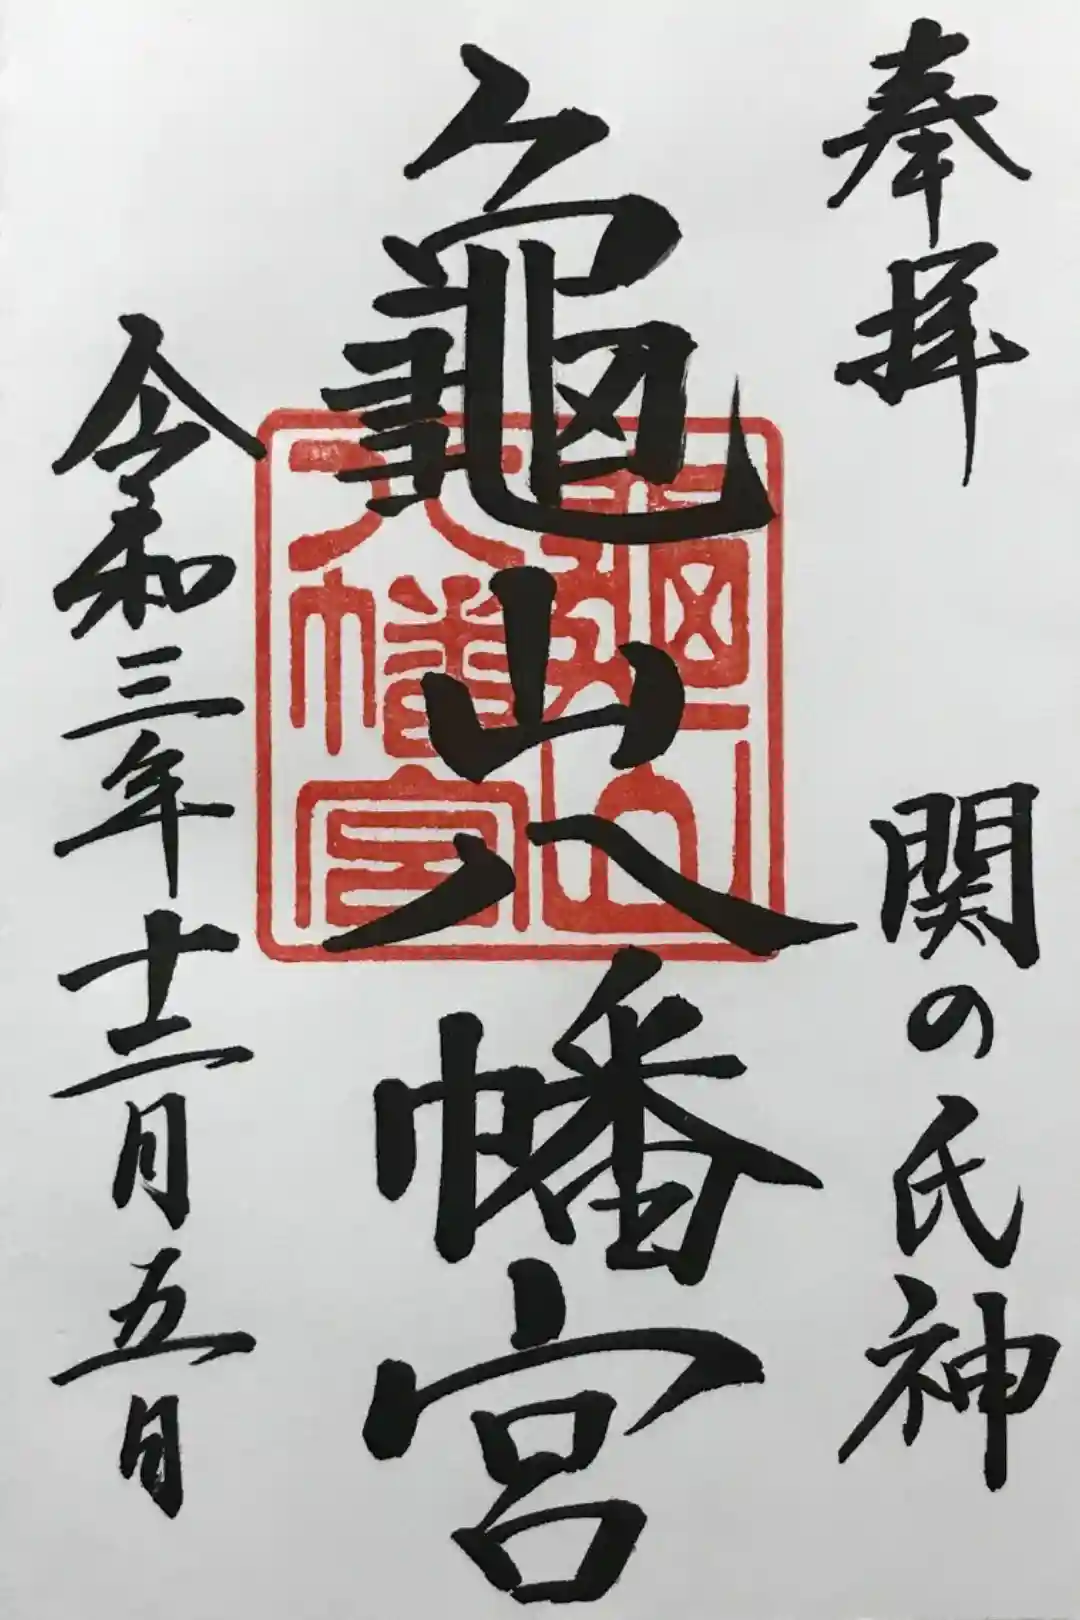 奉拝
関の氏神
龜山八幡宮
龜山
八幡宮
令和三年十二月五日